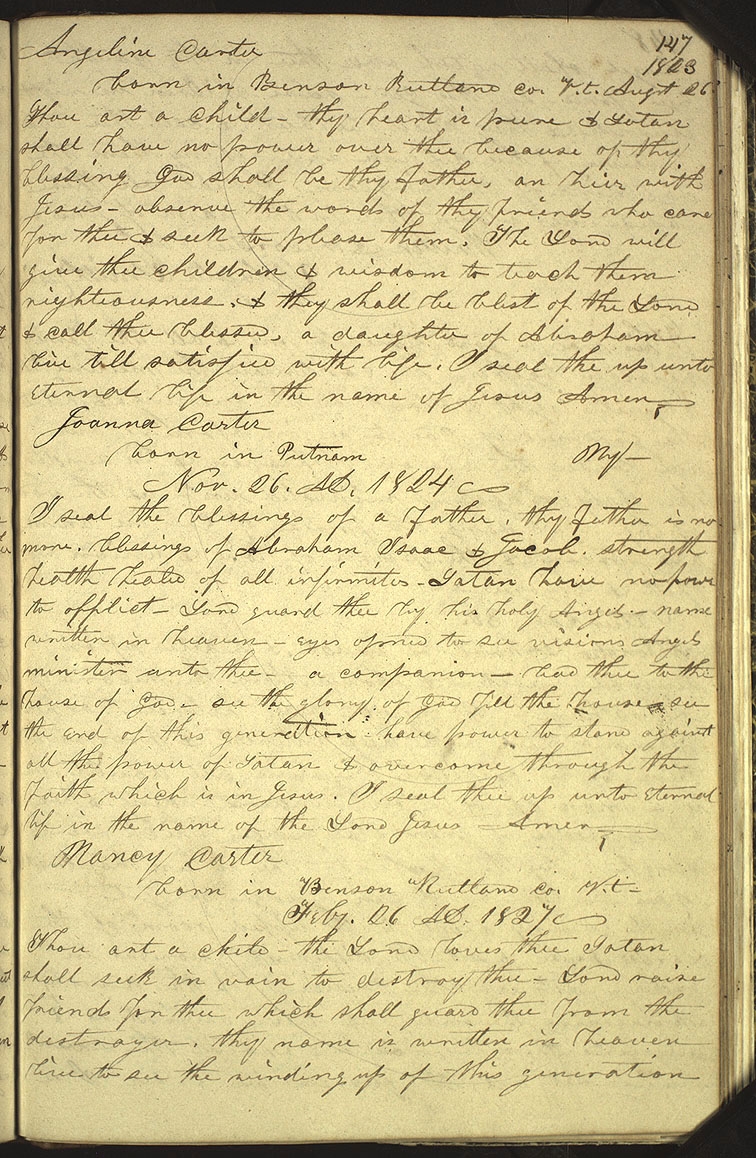 Angeline Carter
147
1823
born in Benson Rutland co. V.t. Augst 26
Thou art a child - thy heart is pure & Satan
shall have no power over thee because of thy
blessing God shall be thy father, an heir with
Jesus - observe the words of thy friends who care
for thee & seek to please them. The Lord will
give thee children & wisdom to teach them
righteousness. & they shall be blest of the Lord
& call thee blessed, a daughter of Abraham
live till satisfied with life. I seal the up unto
Eternal life in the name of Jesus Amen
Joanna Carter
born in Putnam NY -
Nov. 26. AD. 1824
I seal the blessings of a father, thy father is no
more. blessings of Abraham Isaac & Jacob. strength
health healed of all infirmites - Satan have no power
to afflict - Lord guard thee by his holy Angels - name
written in heaven - eyes opned to see visions Angels
minister unto thee - a companion - lead thee to the
house of God - see the glory of God fill the house - see
the end of this generation have power to stand against
all the power of Satan & overcome through the
faith which is in Jesus. I seal thee up unto Eternal
life in the name of the Lord Jesus Amen
Nancy Carter
born in Benson Rutland co. V.t -
Feby. 26 AD. 1827
Thou art a child - the Lord loves thee Satan
shall seek in vain to destroy thee - Lord raise
friends for thee which shall guard thee from the
destroyer. thy name is written in heaven
live to see the winding up of this generation